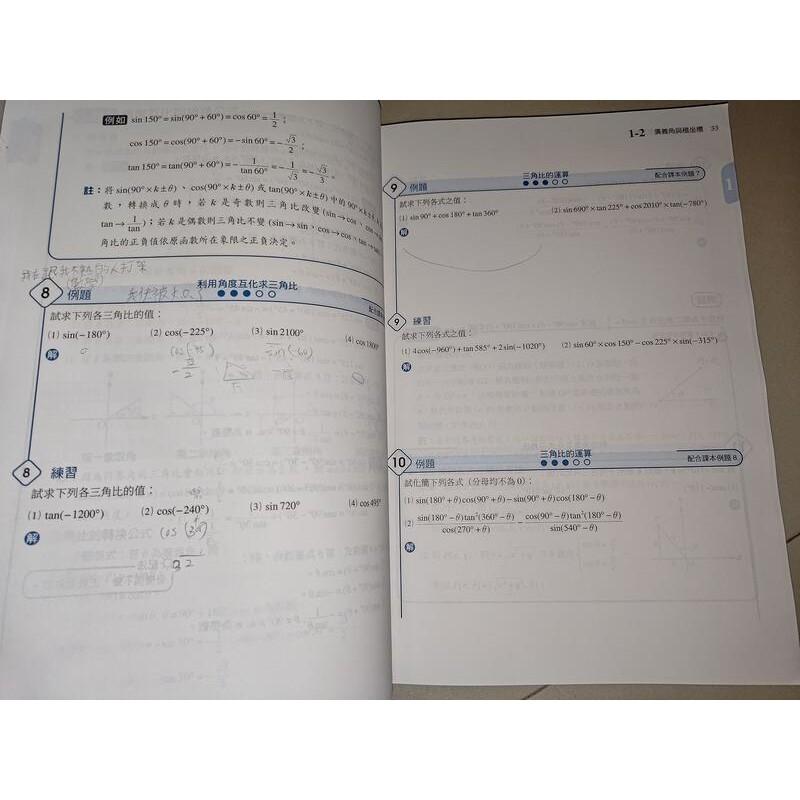 例如 sin 150° = sin(90° + 60°) = cos 60° = 1/2 ;
cos 150° = cos(90° + 60°) = −sin 60° = −√3/2 ;
tan 150° = tan(90° + 60°) = −1/tan 60° = −1/√3 = −√3/3 。
註：將 sin(90°×k±θ)、cos(90°×k±θ) 或 tan(90°×k±θ) 中的 90°×k
數，轉換成 θ 時，若 k 是奇數則三角比改變 (sin→cos、cos
tan→1/tan)；若 k 是偶數則三角比不變 (sin→sin，cos→cos，tan
角比的正負值依原函數所在象限之正負決定。
8 例題
利用角度互化求三角比
試求下列各三角比的值：
(1) sin(−180°) (2) cos(−225°) (3) sin 2100° (4) cos 1800°
解
8 練習
試求下列各三角比的值：
(1) tan(−1200°) (2) cos(−240°) (3) sin 720° (4) cos 495°
解
1-2 廣義角與極坐標 33
1
9 例題
三角比的運算
配合課本例題 7
試求下列各式之值：
(1) sin 90° + cos 180° + tan 360° (2) sin 690° × tan 225° + cos 2010° × tan(−780°)
解
9 練習
試求下列各式之值：
(1) 4cos(−960°) + tan 585° + 2sin(−1020°) (2) sin 60° × cos 150° − cos 225° × sin(−315°)
解
10 例題
三角比的運算
配合課本例題 8
試化簡下列各式（分母均不為 0）：
(1) sin(180° + θ)cos(90° + θ) − sin(90° + θ)cos(180° − θ)
(2) sin(180° − θ)tan²(360° − θ)/cos(270° + θ) − cos(90° − θ)tan²(180° − θ)/sin(540° − θ)
解